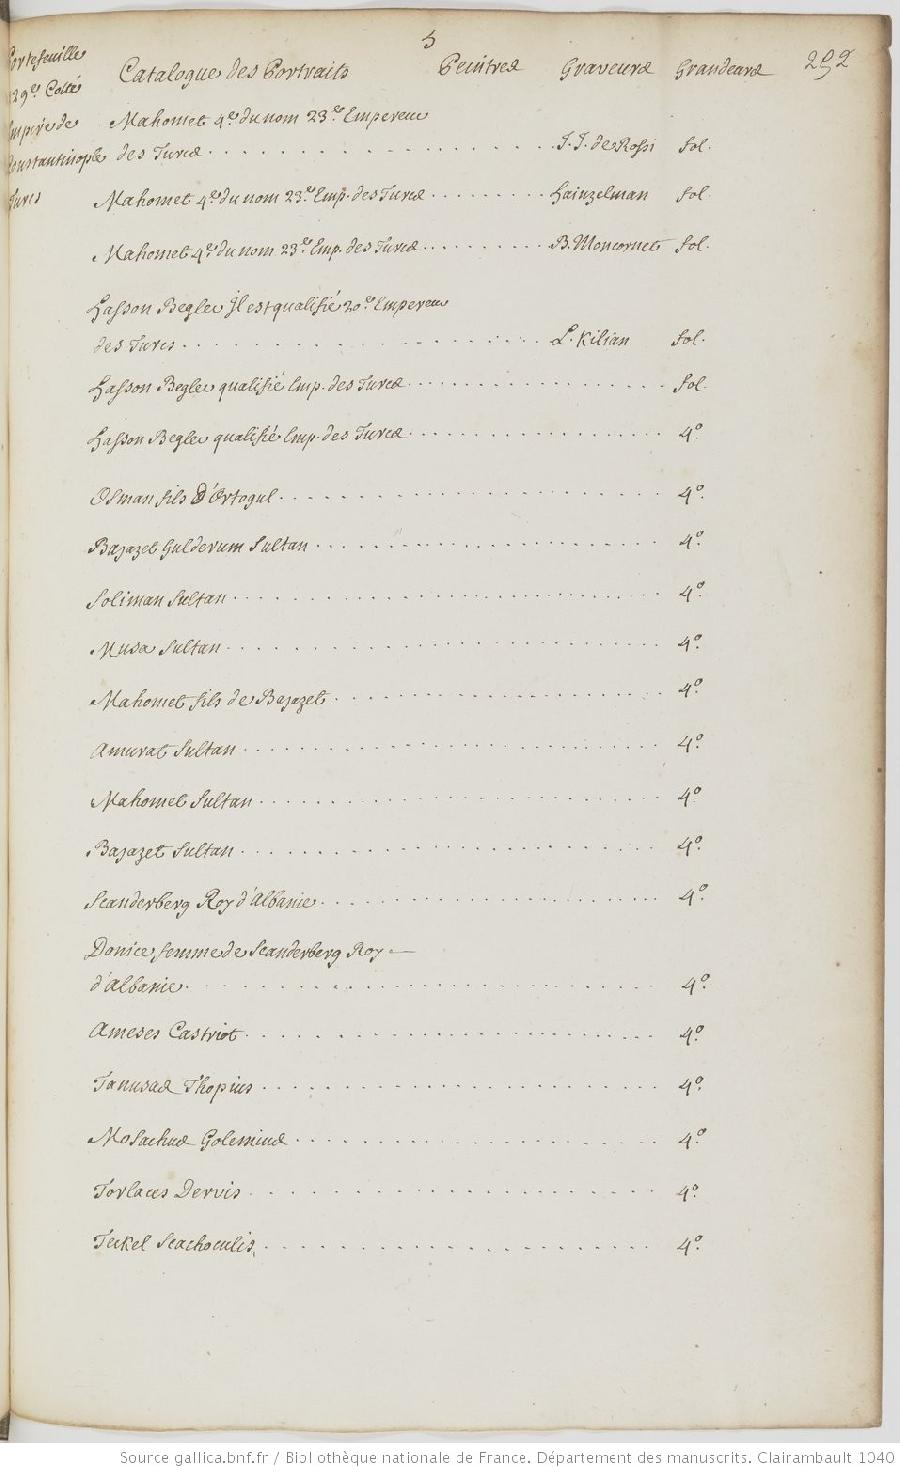 5
Portefeuille
129e Cotté
Catalogue des Portraits Peintres Graveurs Grandeurs 292
Empire de
Constantinople
Turcs
Mahomet 4e du nom 23e Empereur
des Turcs . . . . . . . . J. J. de Rossi fol.
Mahomet 4e du nom 23e Emp. des Turcs . . . . . . . . Hainzelman fol.
Mahomet 4e du nom 23e Emp. des Turcs . . . . . . . . B. Moncornet fol.
Hasson Begler Il est qualifié 20e Empereur
des Turcs . . . . . . . . L. Kilian fol.
Hasson Begler qualifié Emp. des Turcs . . . . . . . . fol.
Hasson Begler qualifié Emp. des Turcs . . . . . . . . 4o
Osman fils D'Ortogul . . . . . . . . 4o.
Bajazet Gulderum Sultan . . . . . . . . 4o.
Soliman Sultan . . . . . . . . 4o.
Musa Sultan . . . . . . . . 4o.
Mahomet fils de Bajazet . . . . . . . . 4o.
Amurat Sultan . . . . . . . . 4o.
Mahomet Sultan . . . . . . . . 4o
Bajazet Sultan . . . . . . . . 4o.
Scanderberg Roy d'Albanie . . . . . . . . 4o.
Donice, femme de Scanderberg Roy
d'Albanie . . . . . . . . 4o.
Ameses Castriot . . . . . . . . 4o.
Tanusas Thopius . . . . . . . . 4o.
Mosachus Golemius . . . . . . . . 4o.
Torlaces Dervis . . . . . . . . 4o.
Teckel Scachoculis . . . . . . . . 4o.
Source gallica.bnf.fr / Bibliothèque nationale de France. Département des manuscrits. Clairambault 1040